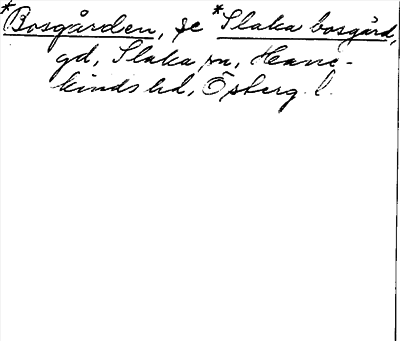 *Bosgården, se *Slaka bosgård,
gd, Slaka sn, Hane-
kinds hd, Östberg. l.